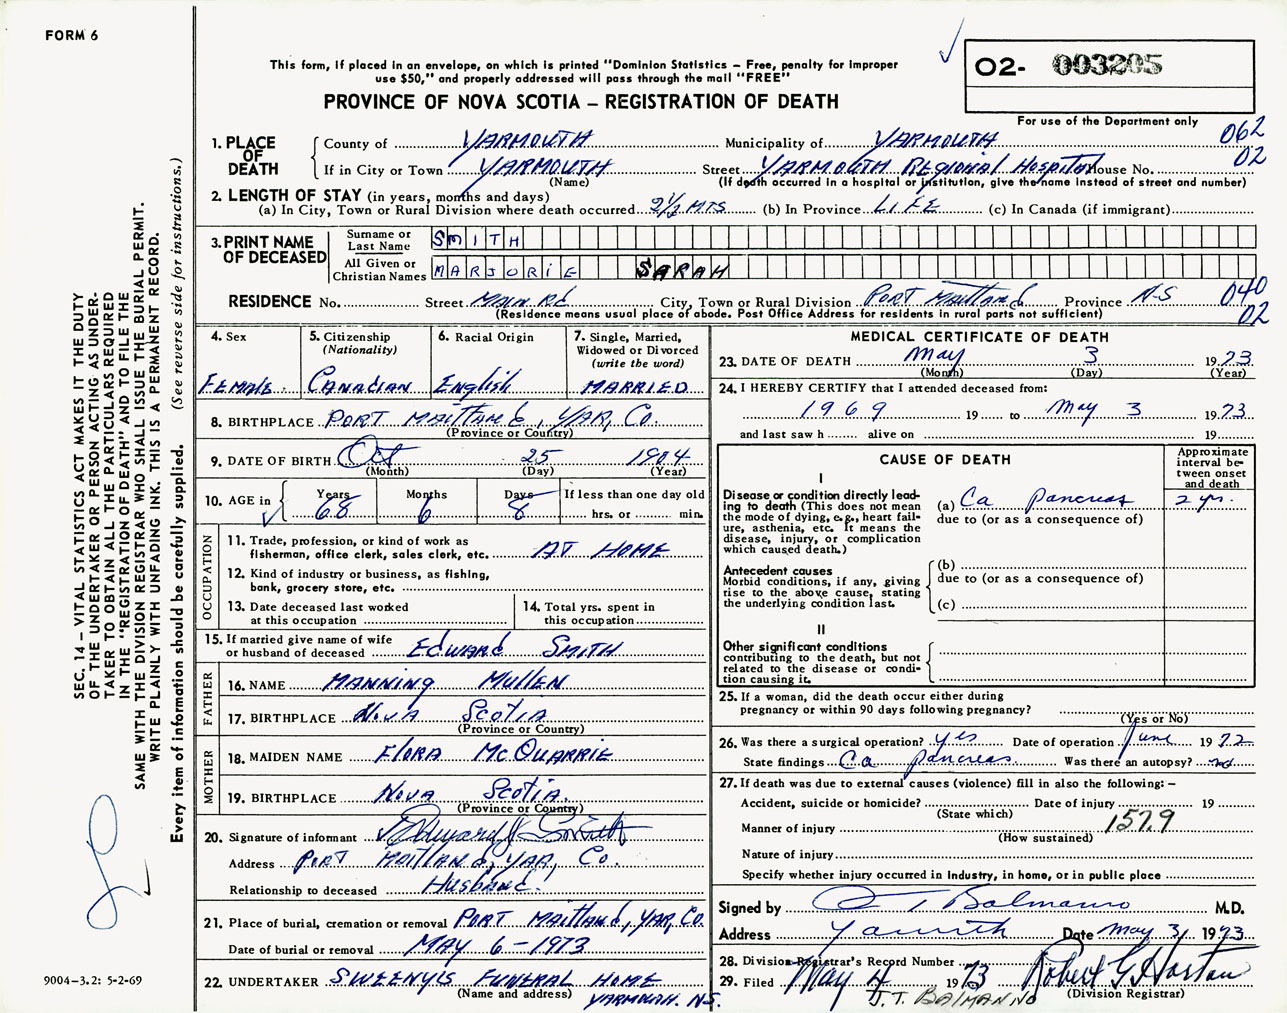 FORM 6
This form, if placed in an envelope, on which is printed "Dominion Statistics – Free, penalty for improper
use $50," and properly addressed will pass through the mail "FREE"
PROVINCE OF NOVA SCOTIA – REGISTRATION OF DEATH
02- 003205
For use of the Department only
062
02
1. PLACE OF DEATH
County of YARMOUTH Municipality of YARMOUTH
If in City or Town YARMOUTH Street YARMOUTH REGIONAL HOSPITAL House No.
(Name) (If death occurred in a hospital or institution, give the name instead of street and number)
2. LENGTH OF STAY (in years, months and days)
(a) In City, Town or Rural Division where death occurred 2½ MTS (b) In Province LIFE (c) In Canada (if immigrant)
3. PRINT NAME OF DECEASED
Surname or Last Name SMITH
All Given or Christian Names MARJORIE SARAH
RESIDENCE No. Street MAIN Rd City, Town or Rural Division PORT MAITLAND Province N-S 040
02
(Residence means usual place of abode. Post Office Address for residents in rural parts not sufficient)
4. Sex
FEMALE
5. Citizenship
(Nationality)
CANADIAN
6. Racial Origin
English
7. Single, Married,
Widowed or Divorced
(write the word)
MARRIED
8. BIRTHPLACE PORT MAITLAND, YAR, Co.
(Province or Country)
9. DATE OF BIRTH Oct 25 1904
(Month) (Day) (Year)
10. AGE in
Years Months Days If less than one day old
68 6 8 hrs. or min.
OCCUPATION
11. Trade, profession, or kind of work as
fisherman, office clerk, sales clerk, etc. AT HOME
12. Kind of industry or business, as fishing,
bank, grocery store, etc.
13. Date deceased last worked
at this occupation
14. Total yrs. spent in
this occupation
15. If married give name of wife
or husband of deceased EDWARD SMITH
FATHER
16. NAME MANNING MULLEN
17. BIRTHPLACE NOVA SCOTIA
(Province or Country)
MOTHER
18. MAIDEN NAME FLORA McQUARRIE
19. BIRTHPLACE NOVA SCOTIA.
(Province or Country)
20. Signature of informant Edward J Smith
Address PORT MAITLAND, YAR, Co.
Relationship to deceased HUSBAND.
21. Place of burial, cremation or removal PORT MAITLAND, YAR, Co.
Date of burial or removal MAY 6 – 1973
22. UNDERTAKER SWEENY'S FUNERAL HOME
(Name and address) YARMOUTH. N.S.
MEDICAL CERTIFICATE OF DEATH
23. DATE OF DEATH May 3 1973
(Month) (Day) (Year)
24. I HEREBY CERTIFY that I attended deceased from:
1969 19 to May 3 1973
and last saw h alive on 19
CAUSE OF DEATH
Approximate
interval be-
tween onset
and death
I
Disease or condition directly lead-
ing to death (This does not mean
the mode of dying, e.g., heart fail-
ure, asthenia, etc. It means the
disease, injury, or complication
which caused death.)
(a) Ca pancreas 2 yr.
due to (or as a consequence of)
Antecedent causes
Morbid conditions, if any, giving
rise to the above cause, stating
the underlying condition last.
(b)
due to (or as a consequence of)
(c)
II
Other significant conditions
contributing to the death, but not
related to the disease or condi-
tion causing it.
25. If a woman, did the death occur either during
pregnancy or within 90 days following pregnancy?
(Yes or No)
26. Was there a surgical operation? yes Date of operation June 1972
State findings Ca pancreas Was there an autopsy? no
27. If death was due to external causes (violence) fill in also the following: –
Accident, suicide or homicide? Date of injury 19
(State which)
Manner of injury 157.9
(How sustained)
Nature of injury
Specify whether injury occurred in Industry, in home, or in public place
Signed by J T Balmanno M.D.
Address Yarmouth Date May 3, 1973
28. Division Registrar's Record Number
29. Filed May 4 1973 Robert G. Horton
(Division Registrar)
J.T. BALMANNO
SEC. 14 – VITAL STATISTICS ACT MAKES IT THE DUTY
OF THE UNDERTAKER OR PERSON ACTING AS UNDER-
TAKER TO OBTAIN ALL THE PARTICULARS REQUIRED
IN THE "REGISTRATION OF DEATH" AND TO FILE THE
SAME WITH THE DIVISION REGISTRAR WHO SHALL ISSUE THE BURIAL PERMIT.
WRITE PLAINLY WITH UNFADING INK. THIS IS A PERMANENT RECORD.
Every item of information should be carefully supplied. (See reverse side for instructions.)
9004–3.2: 5-2-69